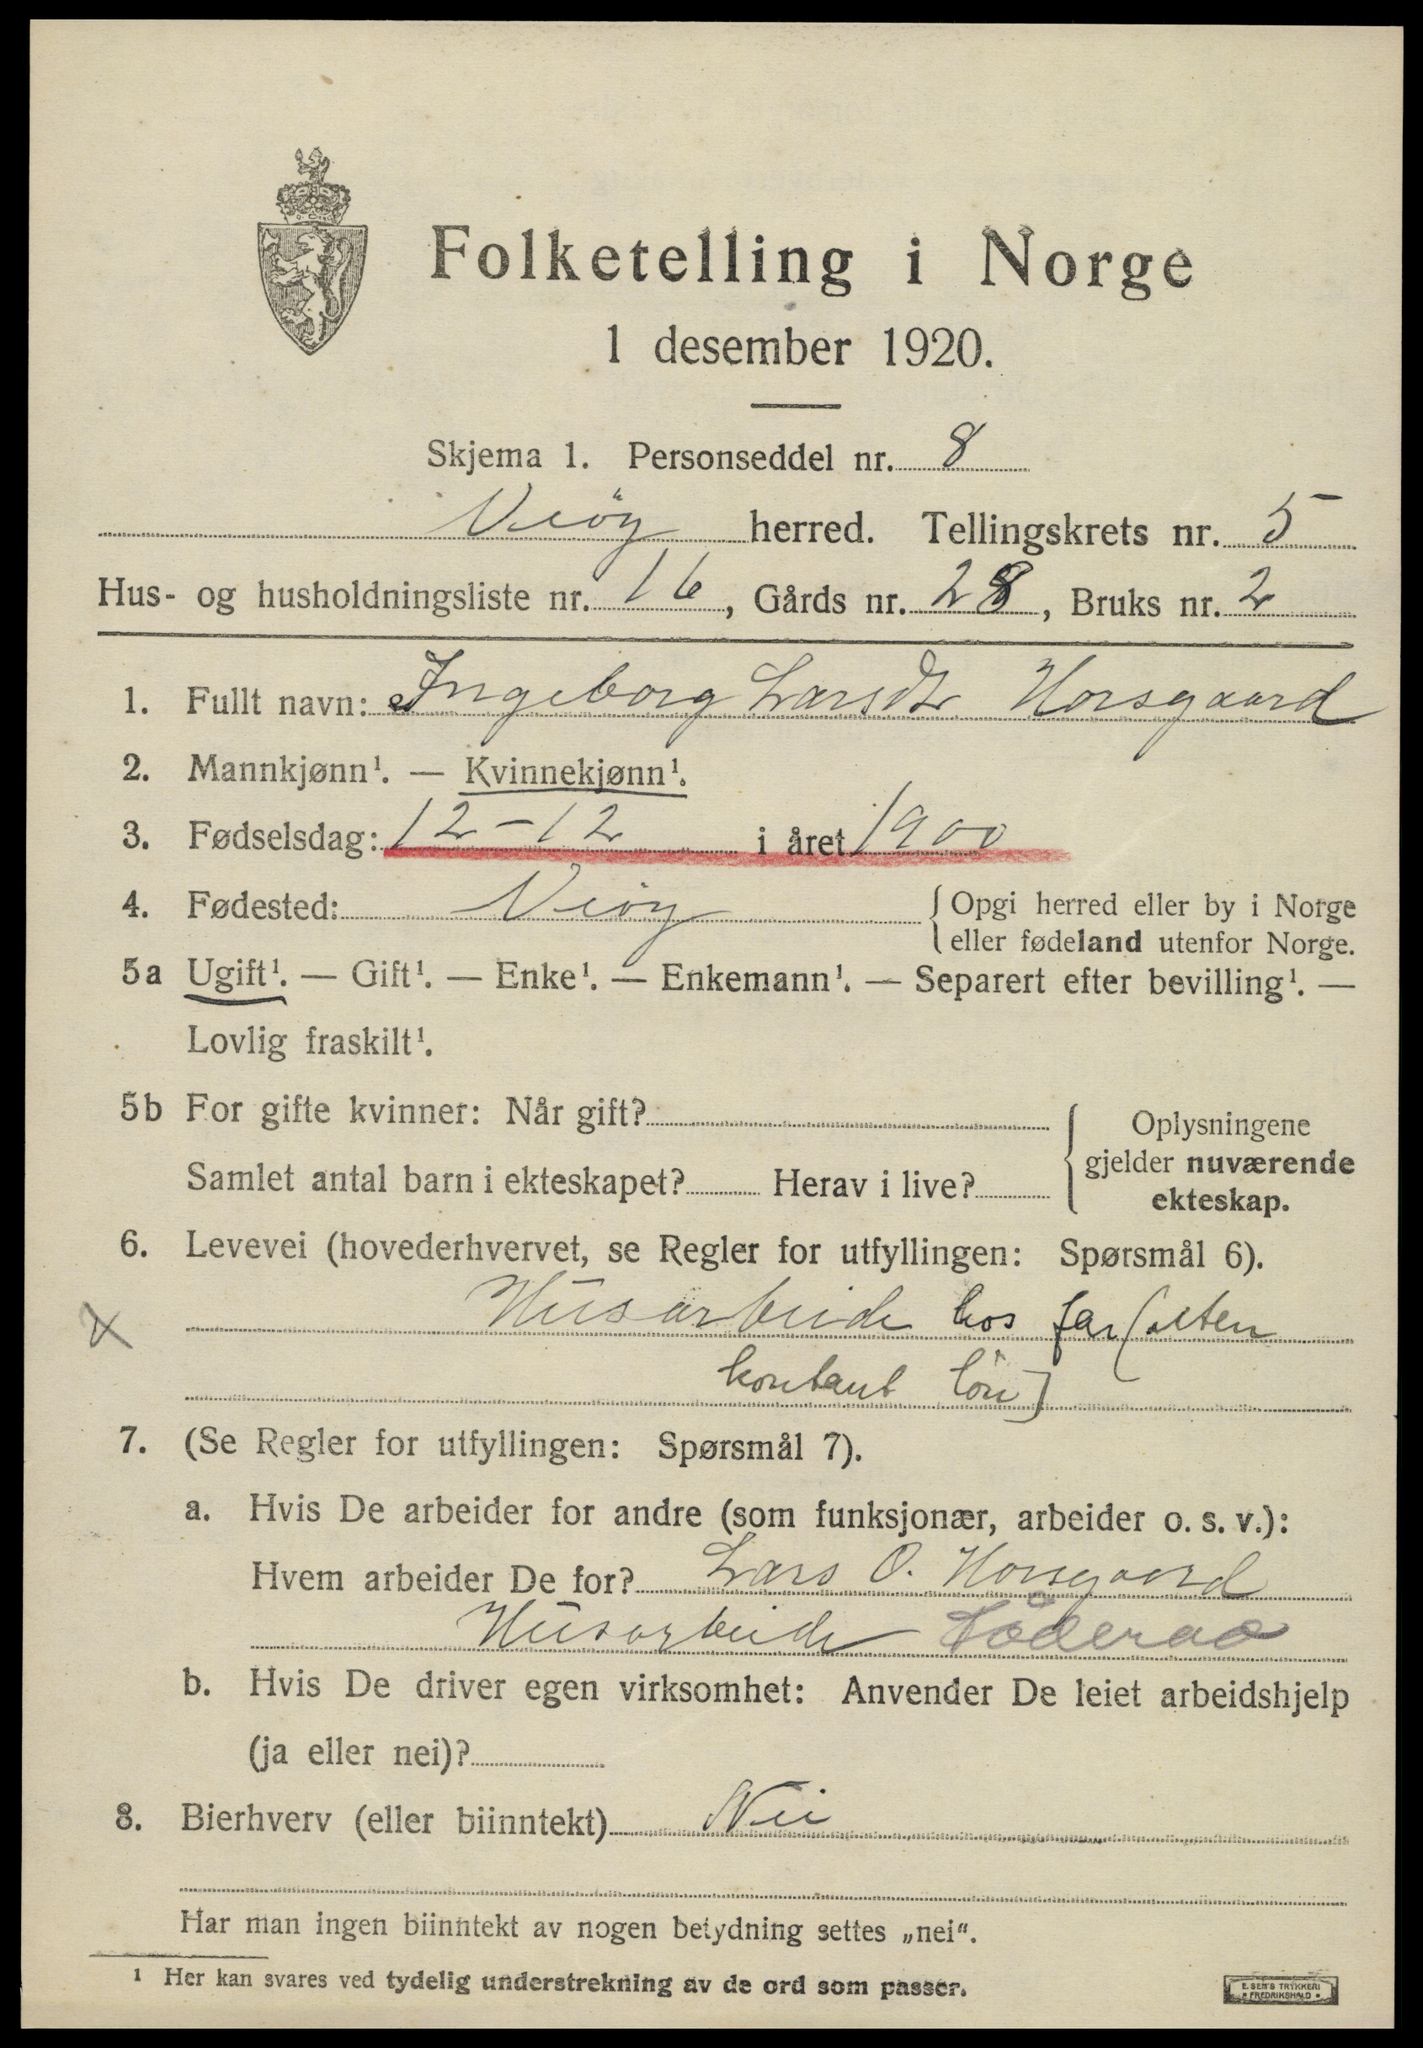 Folketelling i Norge
1 desember 1920.
Skjema 1. Personseddel nr. 8
Veöy herred. Tellingskrets nr. 5
Hus- og husholdningsliste nr. 16, Gårds nr. 28, Bruks nr. 2
1. Fullt navn: Ingeborg Larsdtr Horsgaard
2. Mannkjønn¹. — Kvinnekjønn¹.
3. Fødselsdag: 12-12 i året 1900
4. Fødested: Veöy { Opgi herred eller by i Norge
eller fødeland utenfor Norge.
5a Ugift¹. — Gift¹. — Enke¹. — Enkemann¹. — Separert efter bevilling¹. —
Lovlig fraskilt¹.
5b For gifte kvinner: Når gift? { Oplysningene
gjelder nuværende
Samlet antal barn i ekteskapet? Herav i live?
ekteskap.
6. Levevei (hovederhvervet, se Regler for utfyllingen: Spørsmål 6).
x Husarbeide hos far (uten
kontant lön)
7. (Se Regler for utfyllingen: Spørsmål 7).
a. Hvis De arbeider for andre (som funksjonær, arbeider o. s. v.):
Hvem arbeider De for? Lars O. Horsgaard
Husarbeide
b. Hvis De driver egen virksomhet: Anvender De leiet arbeidshjelp
(ja eller nei)?
8. Bierhverv (eller biinntekt) Nei
Har man ingen biinntekt av nogen betydning settes „nei“.
¹ Her kan svares ved tydelig understrekning av de ord som passer.
E. SEM'S TRYKKERI
• FREDRIKSHALD •